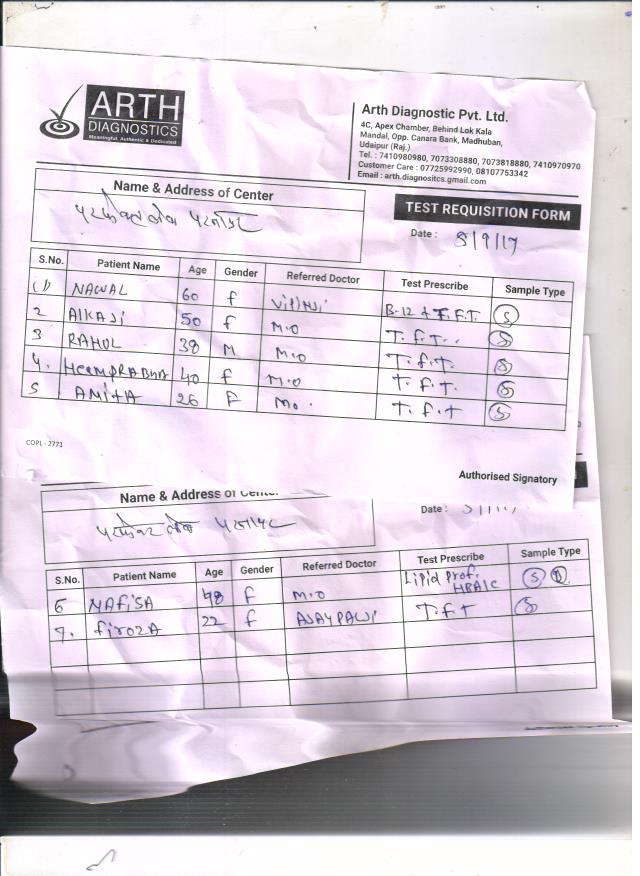 ARTH
DIAGNOSTICS
Meaningful, Authentic & Dedicated
Arth Diagnostic Pvt. Ltd.
4C, Apex Chamber, Behind Lok Kala
Mandal, Opp. Canara Bank, Madhuban,
Udaipur (Raj.)
Tel. : 7410980980, 7073308880, 7073818880, 7410970970
Customer Care : 07725992990, 08107753342
Email : arth.diagnositcs.gmail.com
Name & Address of Center
TEST REQUISITION FORM
Date : 8/9/17
S.No. Patient Name Age Gender Referred Doctor Test Prescribe Sample Type
(1) NAWAL 60 F B-12 & T.F.T. S
2 AlKAJi 50 f M.O T.f.T.. S
3 RAHUL 38 M M.O T.f.T. S
4. HeemPRABHA 40 f M.O T.f.T. S
5 AMitA 26 F Mo. T.f.T S
COPL - 2771
Authorised Signatory
Name & Address of Center
Date :
S.No. Patient Name Age Gender Referred Doctor Test Prescribe Sample Type
6 NAfiSA 48 f M.O Lipid Prof. HBAIC S
7. fiROZA 22 f T.f.T S